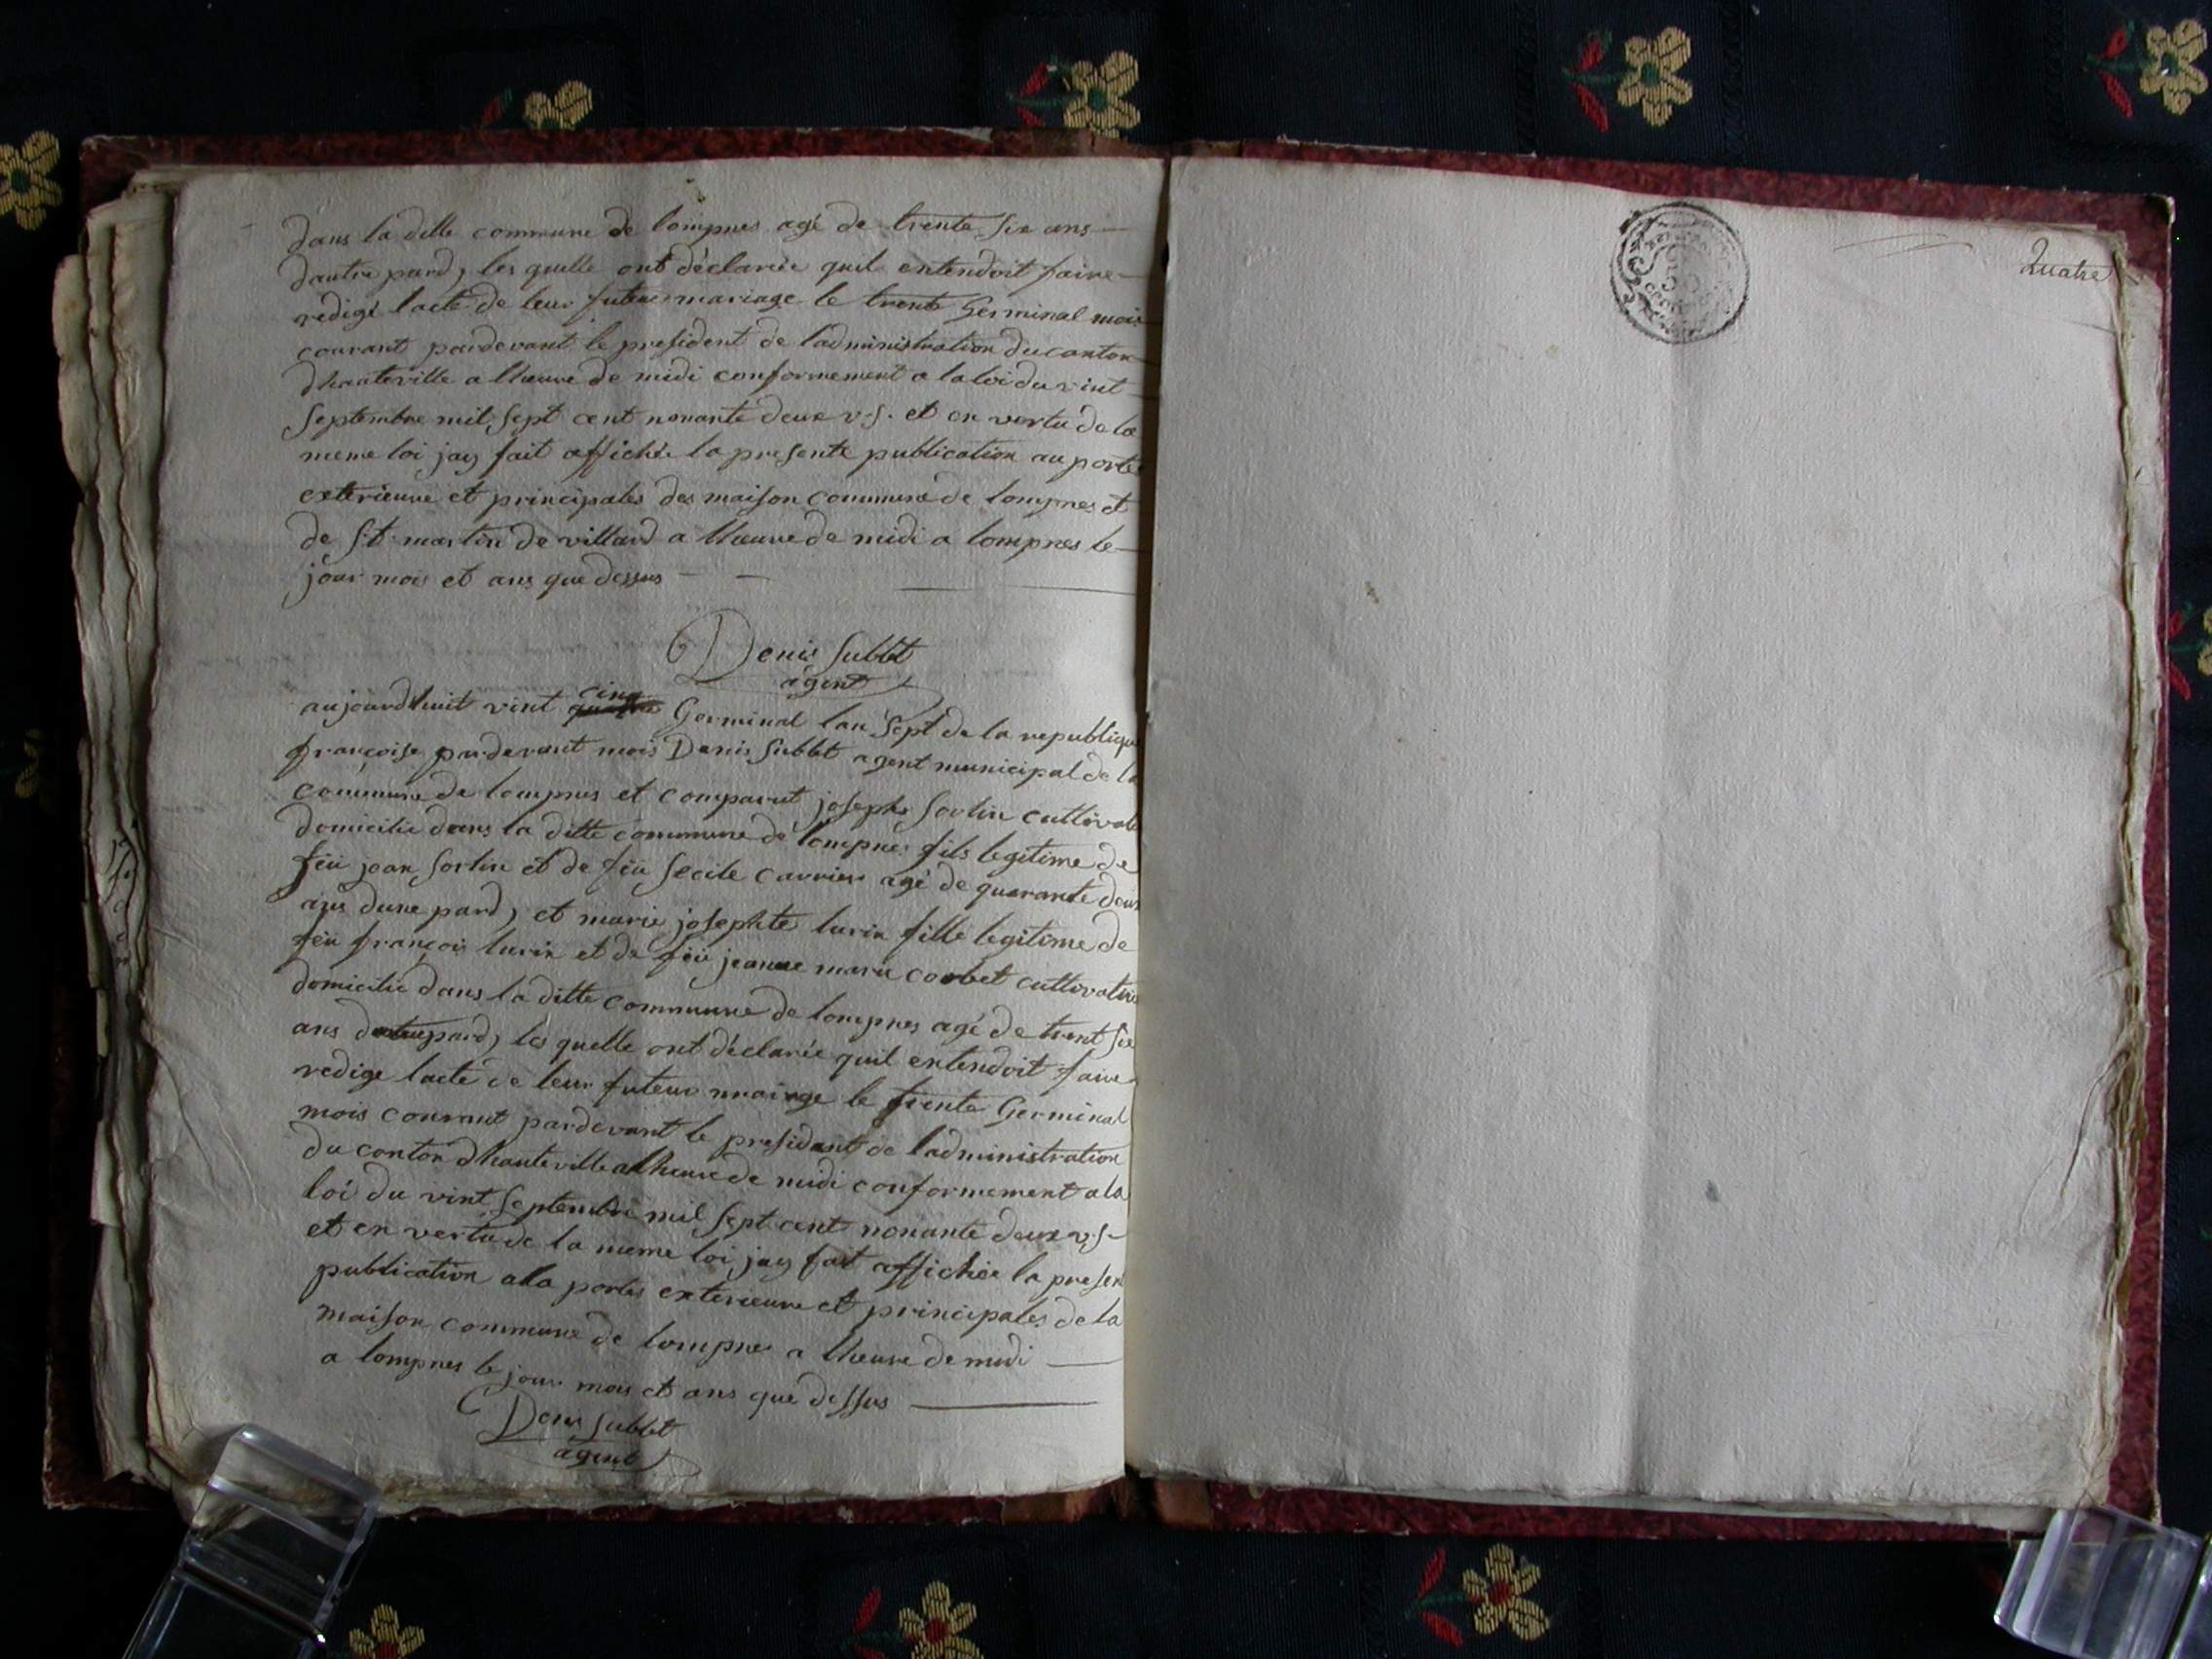 dans la ditte commune de lompnes agé de trente six ans
dautre pard, les quelle ont déclarée quil entendoit faire
redigé lacte de leur futeur mariage le trente Germinal mois
courant pardevant le president de ladministration du canton
dhauteville a lheure de midi conformement a la loi du vint
septembre mil sept cent nonante deux v.s. et en vertu de la
meme loi jay fait affichée la presente publication au portes
exterieure et principales des maison commune de lompnes et
de st martin de villard a lheure de midi a lompnes le
jour mois et ans que dessus
Denis Subbet
agent
cinq
aujourdhuit vint quatre Germinal lan sept de la republique
françoise pardevant mois Denis Subbet agent municipal de la
commune de lompnes et comparut joseph Sorlin cultivate
domicilie dans la ditte commune de lompnes fils legitime de
feü jean Sorlin et de feü Secile Carrier agé de quarante deux
ans dune pard, et marie josephte lurin fille legitime de
feü françois lurin et de feü jeanne marie corbet cultivatrice
domicilié dans la ditte commune de lompnes agé de trent six
ans dautrepard, les quelle ont déclarée quil entendoit faire
redige lacte de leur futeur mraiage le trente Germinal
mois courant pardevant le president de ladministration
du canton dhauteville a lheure de midi conformement a la
loi du vint septembre mil sept cent nonante deux v.s.
et en vertu de la meme loi jay fait affichée la presen
publication a la portes exterieure et principales de la
maison commune de lompnes a lheure de midi
a lompnes le jour mois et ans que dessus
Denis Subbet
agent
Quatre